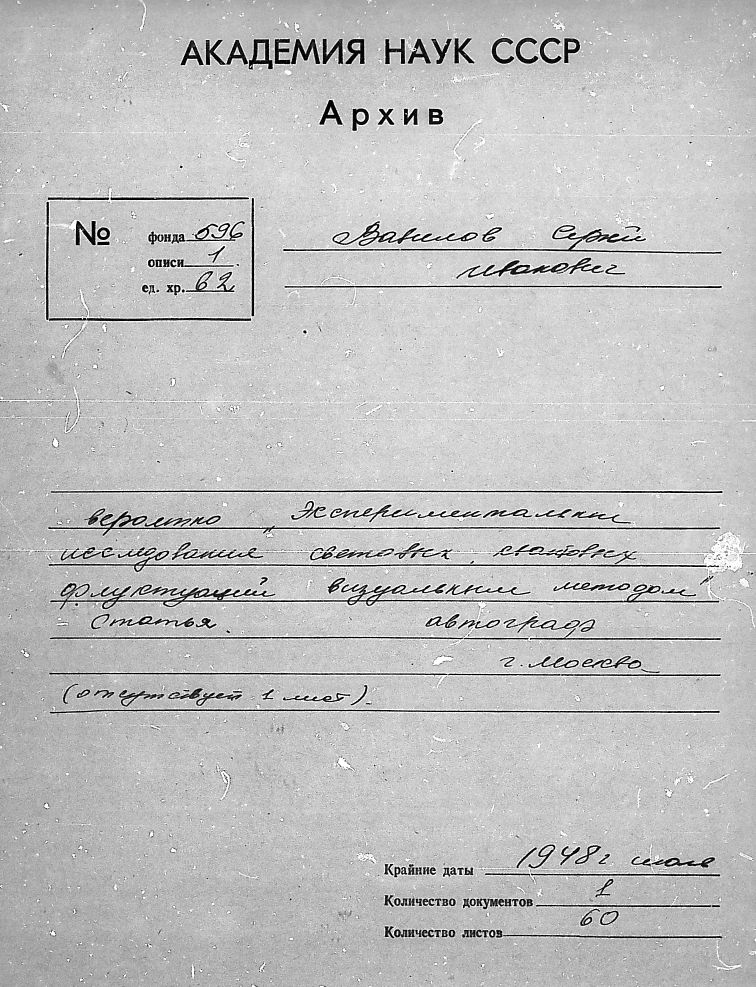 АКАДЕМИЯ НАУК СССР
Архив
№ фонда 596
описи 1
ед. хр. 62
Вавилов Сергей
Иванович
вероятно „Экспериментальные
исследования световых квантовых
флуктуаций визуальным методом"
- Статья. автограф
г. Москва
(отсутствует 1 лист).
Крайние даты 1948г июль
Количество документов 1
Количество листов 60